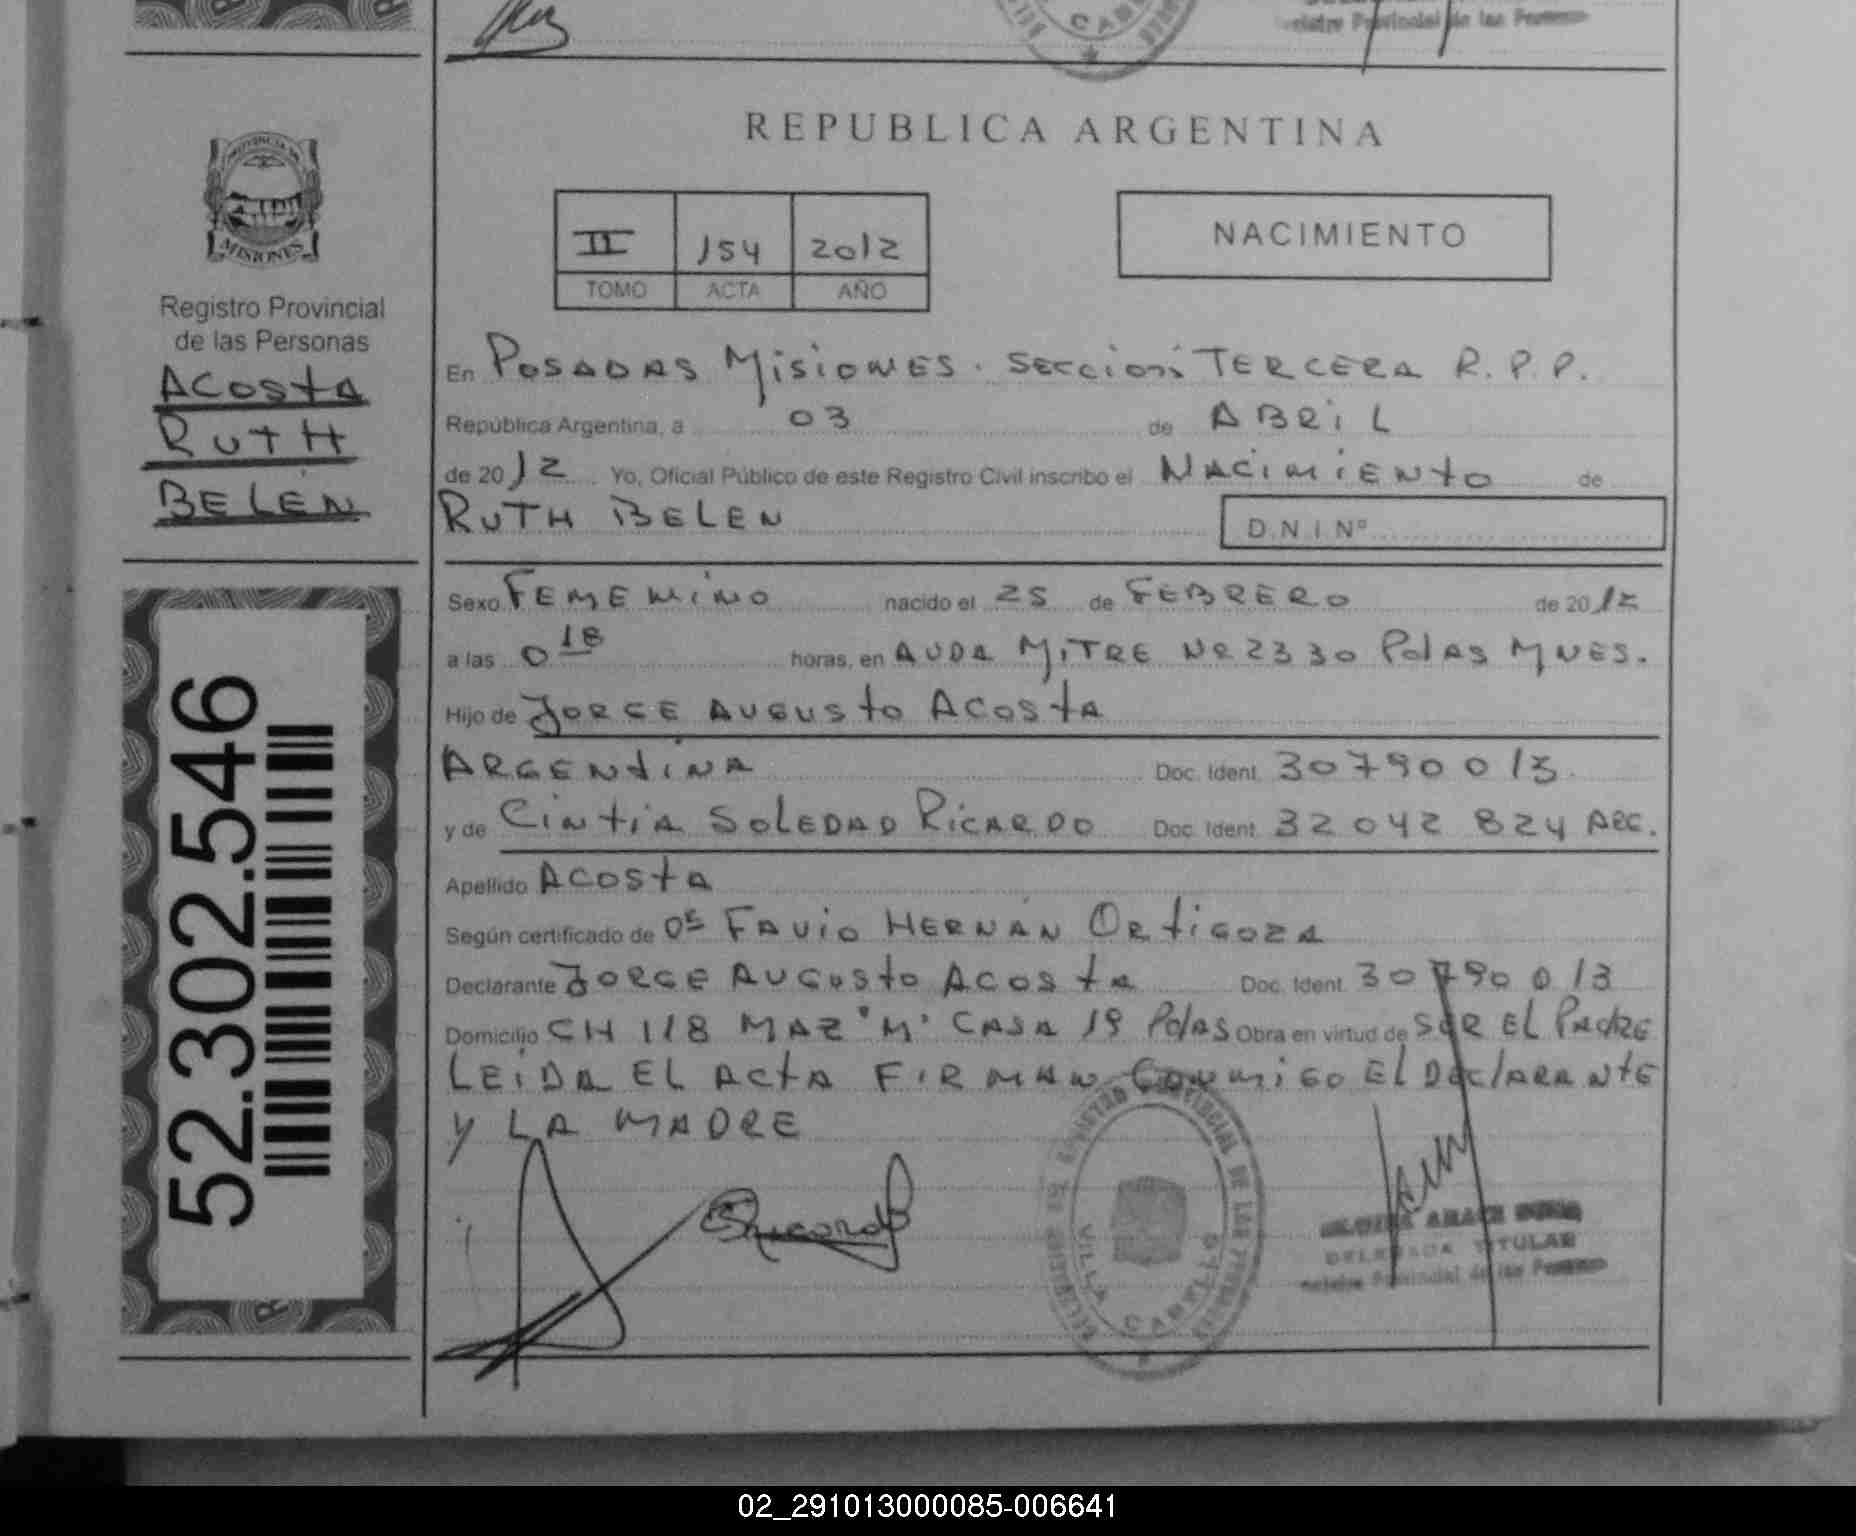 Registro Provincial de las Personas
REPUBLICA ARGENTINA
PROVINCIA DE
MISIONES
II 154 2012
TOMO ACTA AÑO
NACIMIENTO
Registro Provincial
de las Personas
ACOSTA
RUTH
BELÉN
En POSADAS MISIONES. SECCIÓN TERCERA R.P.P.
República Argentina, a 03 de ABRIL
de 2012 Yo, Oficial Público de este Registro Civil inscribo el NACIMIENTO de
RUTH BELEN D.N.I Nº
Sexo FEMENINO nacido el 25 de FEBRERO de 2012
a las 0 18 horas, en AVDA MITRE NR 2330 Pdas MNES.
Hijo de JORGE AUGUSTO ACOSTA
ARGENTINA Doc. Ident. 30790013
y de CINTIA SOLEDAD RICARDO Doc. Ident. 32042 824 ARG.
Apellido ACOSTA
Según certificado de FAVIO HERNÁN ORTIGOZA
Declarante JORGE AUGUSTO ACOSTA Doc. Ident. 30790013
Domicilio CH 118 MAZ "M" CASA 19 Pdas Obra en virtud de SER EL PADRE
LEIDA EL ACTA FIRMAN CONMIGO EL DECLARANTE
Y LA MADRE
52.302.546
REGISTRO PROVINCIAL DE LAS PERSONAS
VILLA CABELLO
DELEGADA TITULAR
Registro Provincial de las Personas
02_291013000085-006641